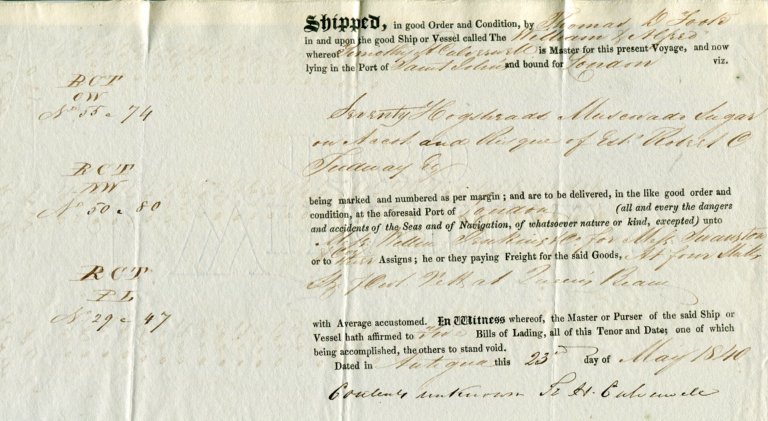 Shipped, in good Order and Condition, by Thomas D Foote
in and upon the good Ship or Vessel called The William & Alfred
whereof Timothy A. is Master for this present Voyage, and now
lying in the Port of Saint Johns and bound for London viz.
RCT
OW
No 55 a 74
Seventy Hogsheads Muscovado Sugar
on Acct and Risque of Est Robert C
Tudway Esq
RCT
NW
No 50 a 80
being marked and numbered as per margin; and are to be delivered, in the like good order and
condition, at the aforesaid Port of London (all and every the dangers
and accidents of the Seas and of Navigation, of whatsoever nature or kind, excepted) unto
& Co for Swanston
or to their Assigns; he or they paying Freight for the said Goods, At four Shills
RCT
PL
No 29 a 47
at Queen's Beam
with Average accustomed. In Witness whereof, the Master or Purser of the said Ship or
Vessel hath affirmed to Five Bills of Lading, all of this Tenor and Date; one of which
being accomplished, the others to stand void.
Dated in Antigua this 23d day of May 1840
Contents unknown